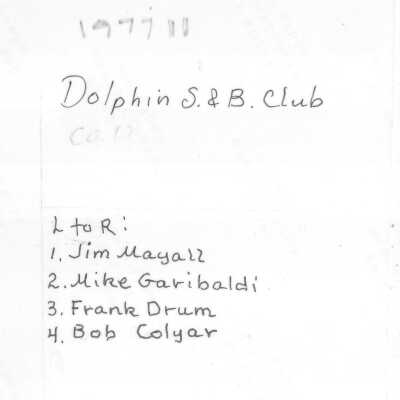 1977
Dolphin S. & B. Club
L to R:
1. Jim Mayall
2. Mike Garibaldi
3. Frank Drum
4. Bob Colyar